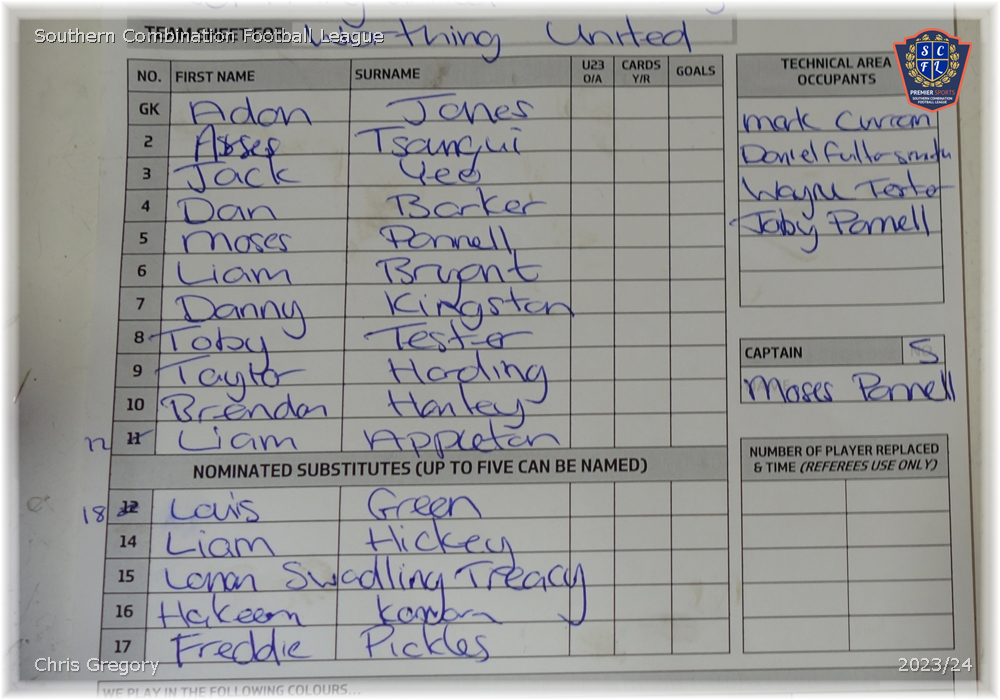 Southern Combination Football League
TEAM SHEET FOR Worthing United
NO. FIRST NAME SURNAME U23 O/A CARDS Y/R GOALS
GK Adan Jones
2 Tsangui
3 Jack Yeo
4 Dan Barker
5 Moses Pannell
6 Liam Bryant
7 Danny Kingston
8 Toby Tester
9 Taylor Harding
10 Brendan Hanley
12 11 Liam Appleton
NOMINATED SUBSTITUTES (UP TO FIVE CAN BE NAMED)
18 12 Louis Green
14 Liam Hickey
15 Lonan Swadling Treacy
16 Hakeem
17 Freddie Pickles
WE PLAY IN THE FOLLOWING COLOURS...
TECHNICAL AREA
OCCUPANTS
Mark Curram
Daniel Fuller smith
Wayne Tester
Toby Pannell
CAPTAIN NO 5
Moses Pannell
NUMBER OF PLAYER REPLACED
& TIME (REFEREES USE ONLY)
SCFL
PREMIER SPORTS
SOUTHERN COMBINATION
FOOTBALL LEAGUE
Chris Gregory
2023/24